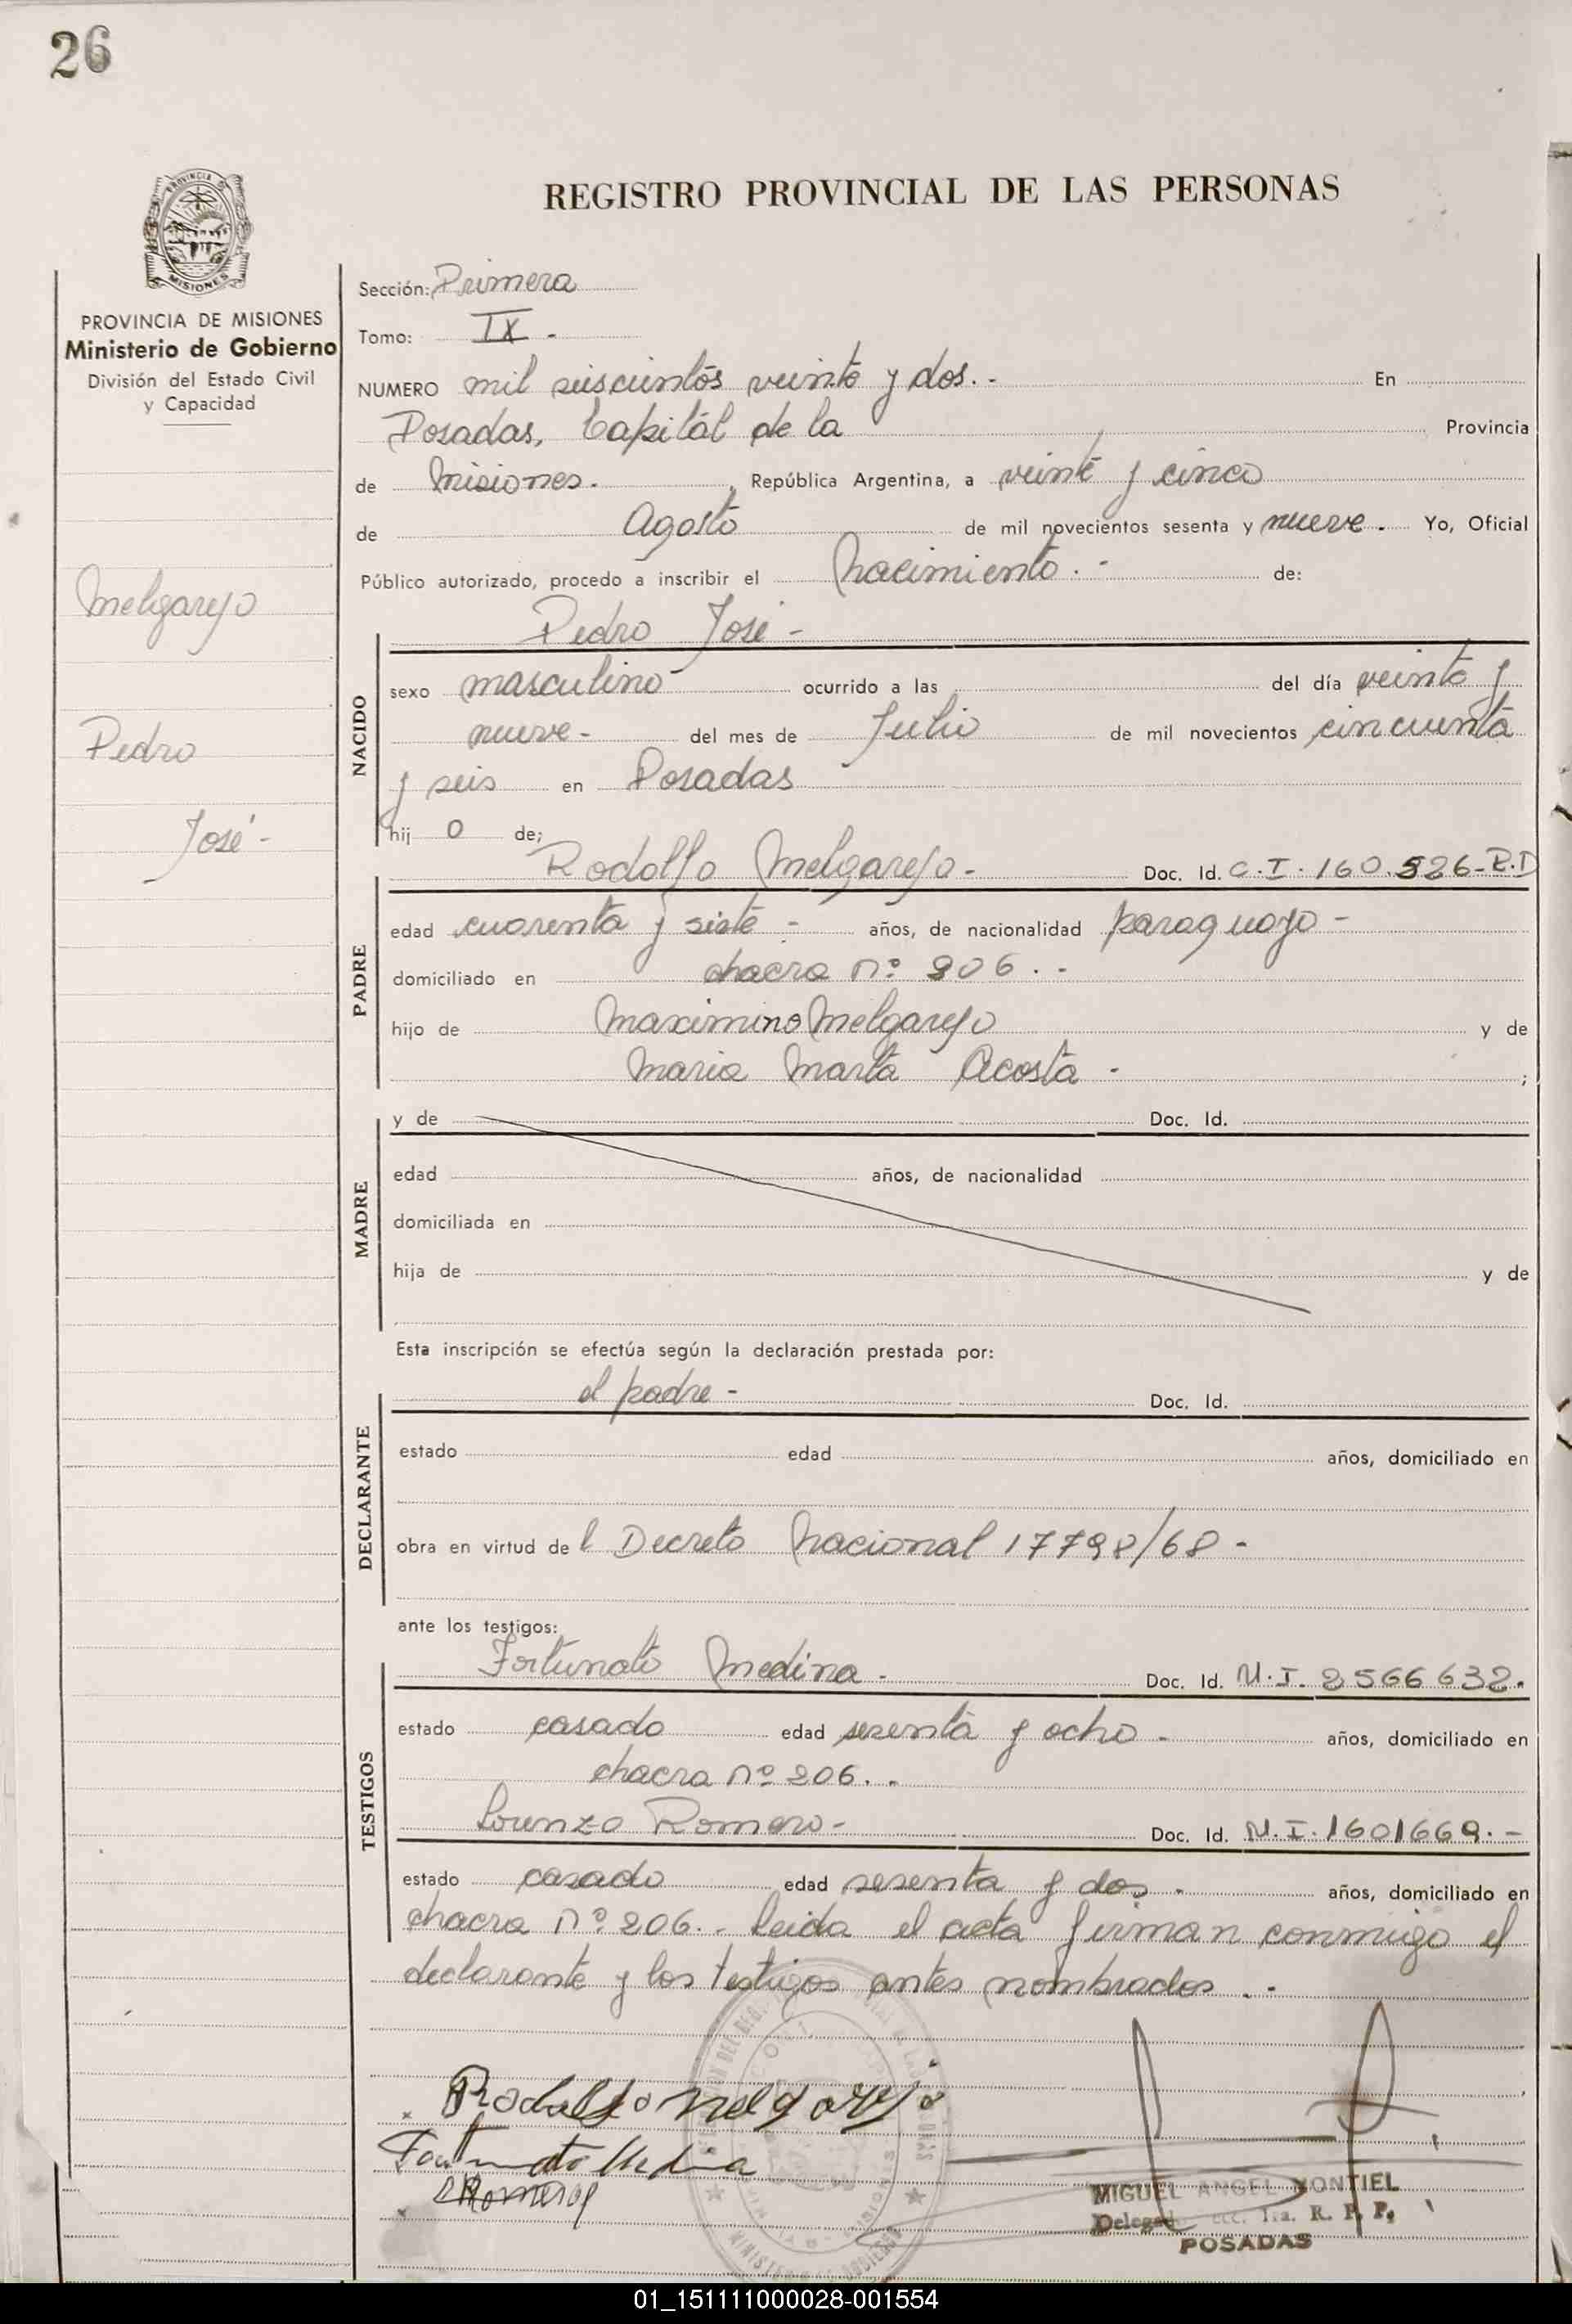 26
PROVINCIA DE
MISIONES
REGISTRO PROVINCIAL DE LAS PERSONAS
PROVINCIA DE MISIONES
Ministerio de Gobierno
División del Estado Civil
y Capacidad
Melgarejo
Pedro
José -
Sección: Primera
Tomo: IX -
NUMERO mil seiscientos veinte y dos. - En
Posadas, Capital de la Provincia
de Misiones. , República Argentina, a veinte y cinco
de Agosto de mil novecientos sesenta y nueve. Yo, Oficial
Público autorizado, procedo a inscribir el Nacimiento. - de:
Pedro José -
NACIDO
sexo masculino ocurrido a las del día veinte y
nueve - del mes de Julio de mil novecientos cincuenta
y seis en Posadas
hij o de;
Rodolfo Melgarejo - Doc. Id. C.I. 160.526-R.D
PADRE
edad cuarenta y siete - años, de nacionalidad paraguayo -
domiciliado en chacra nº 206. -
hijo de Maximino Melgarejo y de
Maria Marta Acosta - ;
MADRE
y de Doc. Id.
edad años, de nacionalidad
domiciliada en
hija de y de
Esta inscripción se efectúa según la declaración prestada por:
el padre - Doc. Id.
DECLARANTE
estado edad años, domiciliado en
obra en virtud de l Decreto Nacional 17798/68 -
ante los testigos:
Fortunato Medina - Doc. Id. M.I. 2566632.
TESTIGOS
estado casado edad sesenta y ocho - años, domiciliado en
chacra nº 206. .
Lorenzo Romero - Doc. Id. M.I. 1601669. -
estado casado edad sesenta y dos - años, domiciliado en
chacra nº 206. - Leida el acta firman conmigo el
declarante y los testigos antes nombrados . -
Rodolfo Melgarejo
Fortunato Medina
LRomero
MIGUEL ANGEL MONTIEL
R. P. P.
POSADAS
01_151111000028-001554